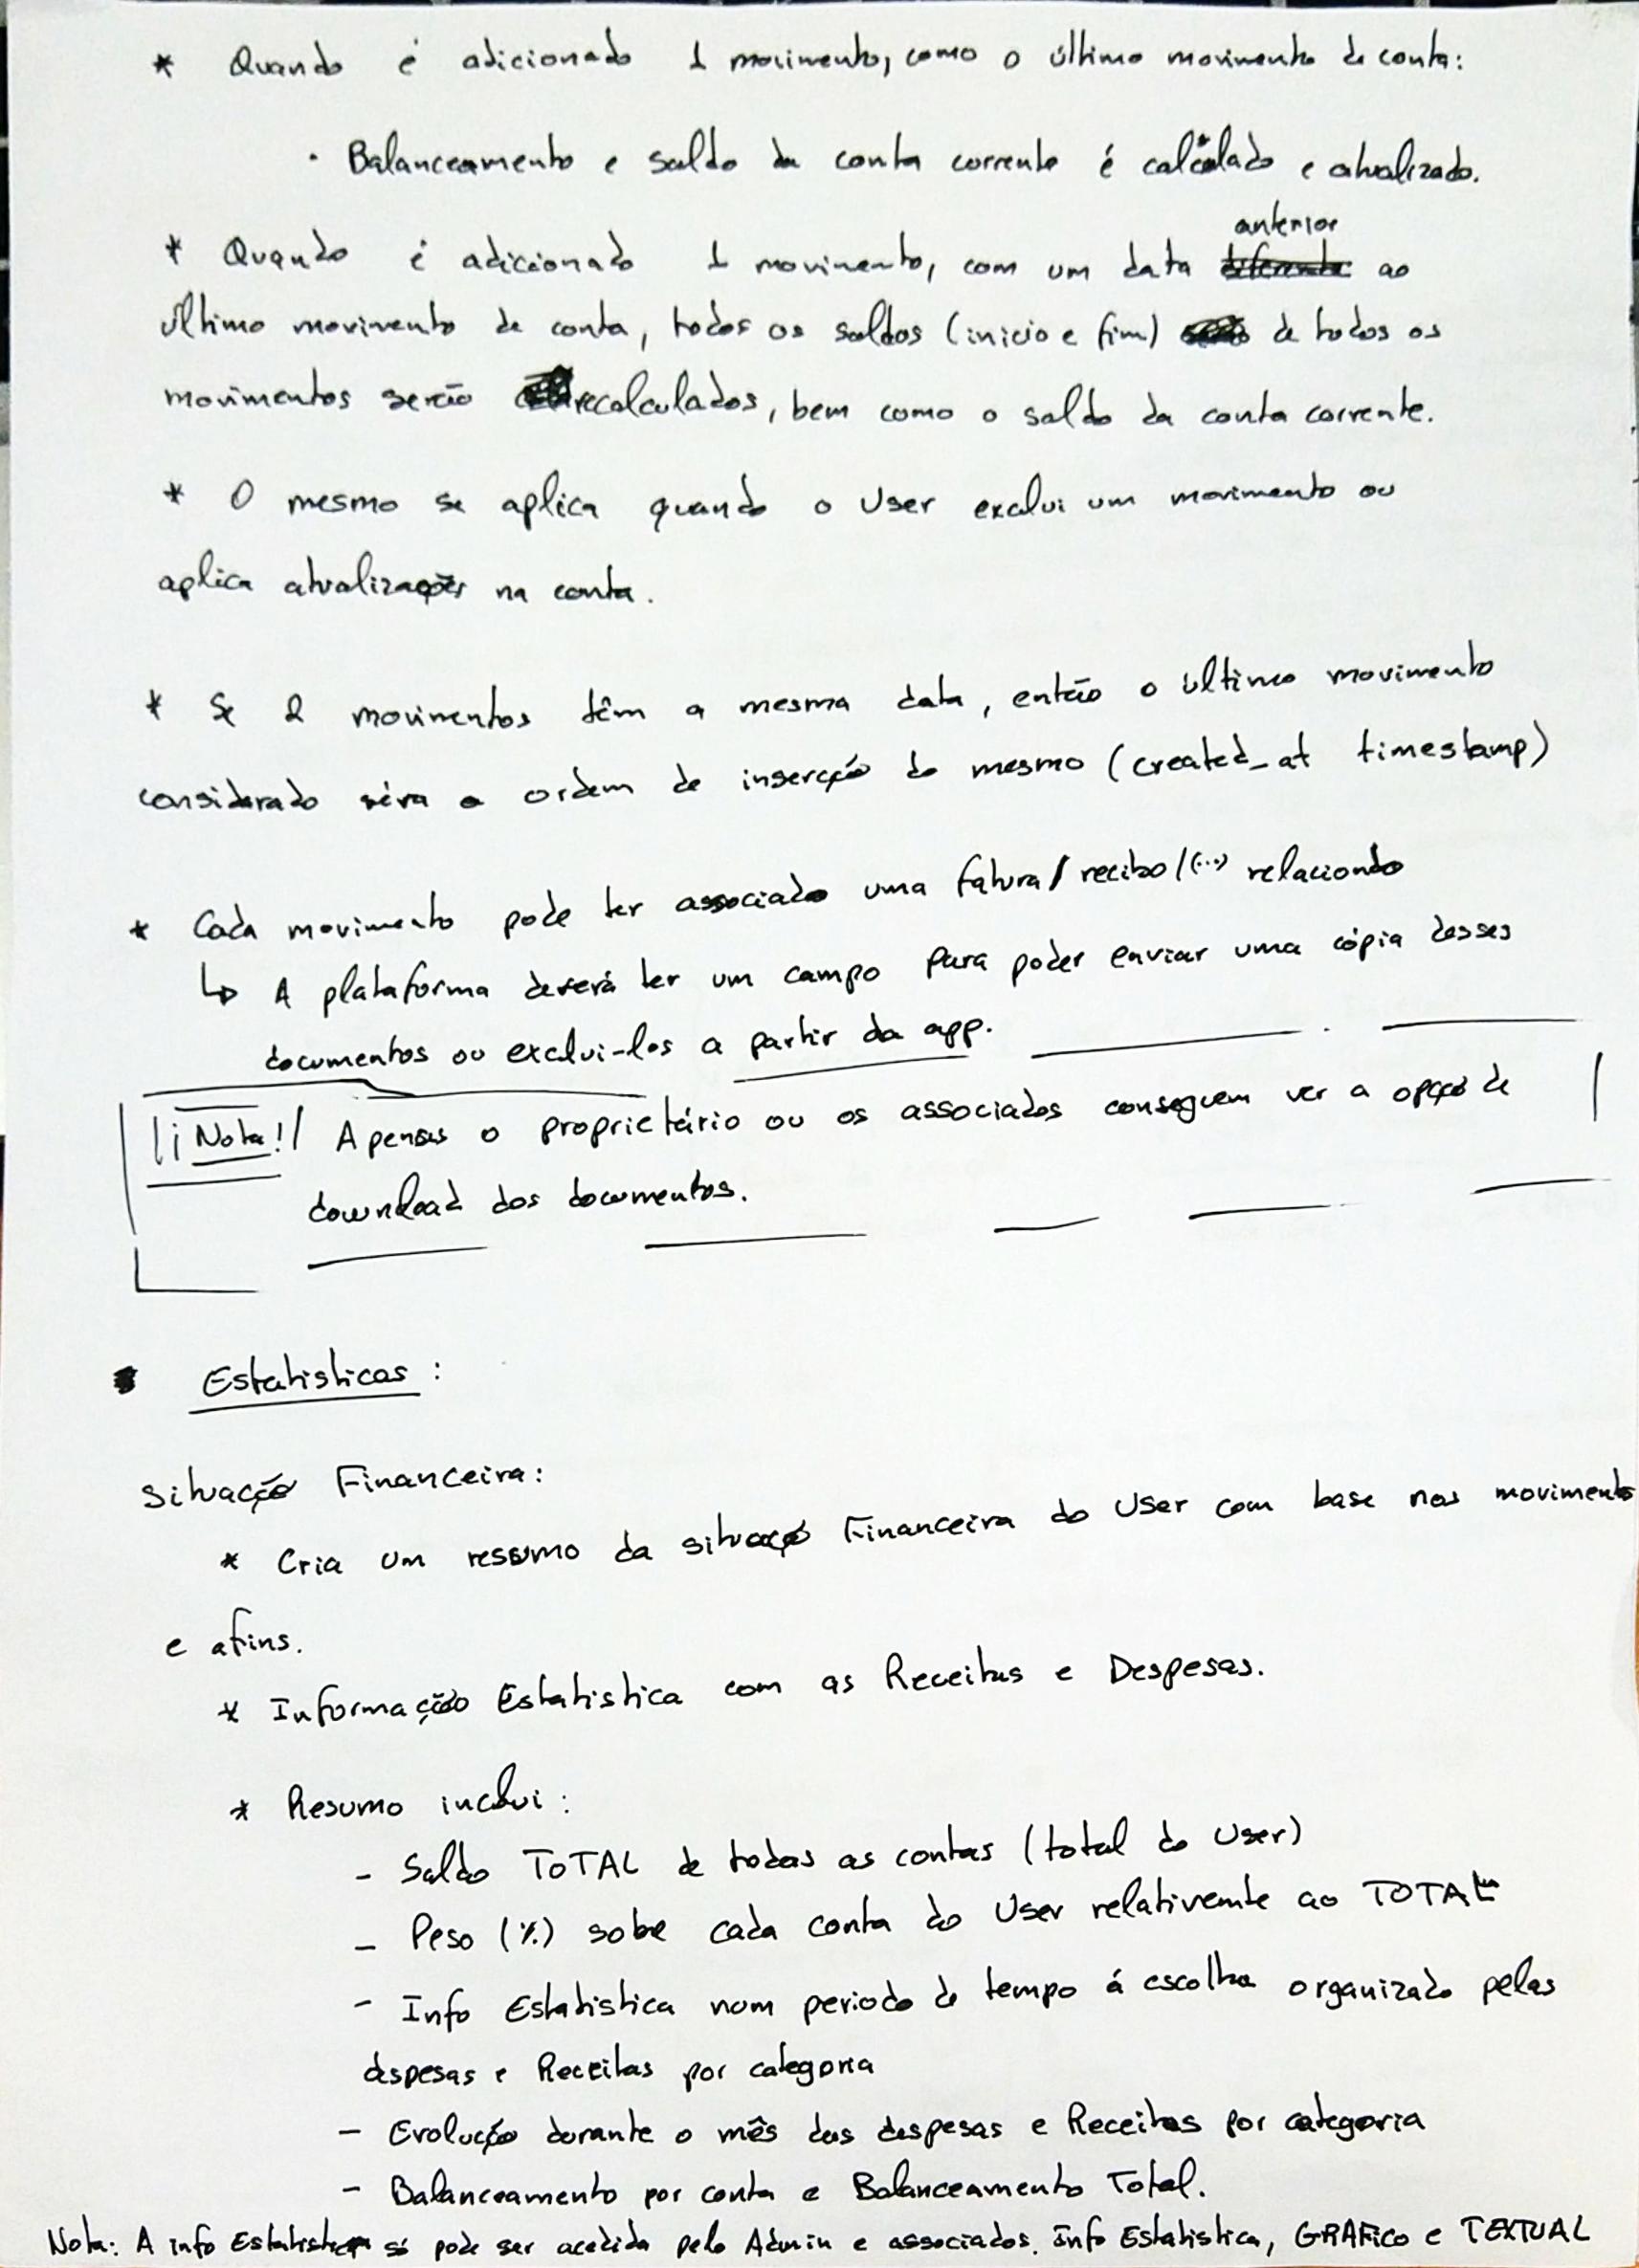 * Quando é adicionado 1 movimento, como o último movimento de conta:
· Balanceamento e saldo da conta corrente é calculado e atualizado.
anterior
* Quando é adicionado 1 movimento, com um data diferente ao
último movimento de conta, todos os saldos (inicio e fim) de todos os
movimentos serão recalculados, bem como o saldo da conta corrente.
* O mesmo se aplica quando o User exclui um movimento ou
aplica atualizações na conta.
* Se 2 movimentos têm a mesma data, então o último movimento
considerado séra a ordem de inserção do mesmo (created_at timestamp)
* Cada movimento pode ter associado uma fatura/recibo/(...) relaciondo
↳ A plataforma deverá ter um campo para poder enviar uma cópia desses
documentos ou exclui-los a partir da app.
¡¡Nota!! Apenas o proprietário ou os associados conseguem ver a opção de
download dos documentos.
Estatisticas:
Situação Financeira:
* Cria um ressumo da situação Financeira do User com base nos movimento
e afins.
* Informação Estatistica com as Receitas e Despesas.
* Resumo inclui:
- Saldo TOTAL de todas as contas (total do User)
- Peso (%) sobre cada conta do User relativemte ao TOTAL
- Info Estatistica num periodo de tempo á escolha organizado pelas
despesas e Receitas por categoria
- Evolução durante o mês das despesas e Receitas por categoria
- Balanceamento por conta e Balanceamento Total.
Nota: A info Estatistica só pode ser acedida pelo Admin e associados. Info Estatistica, GRAFICO e TEXTUAL